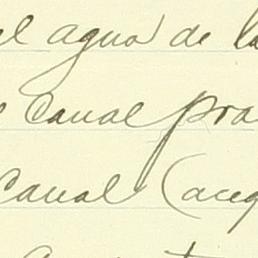 el agua de la
canal pra
canal (aceq